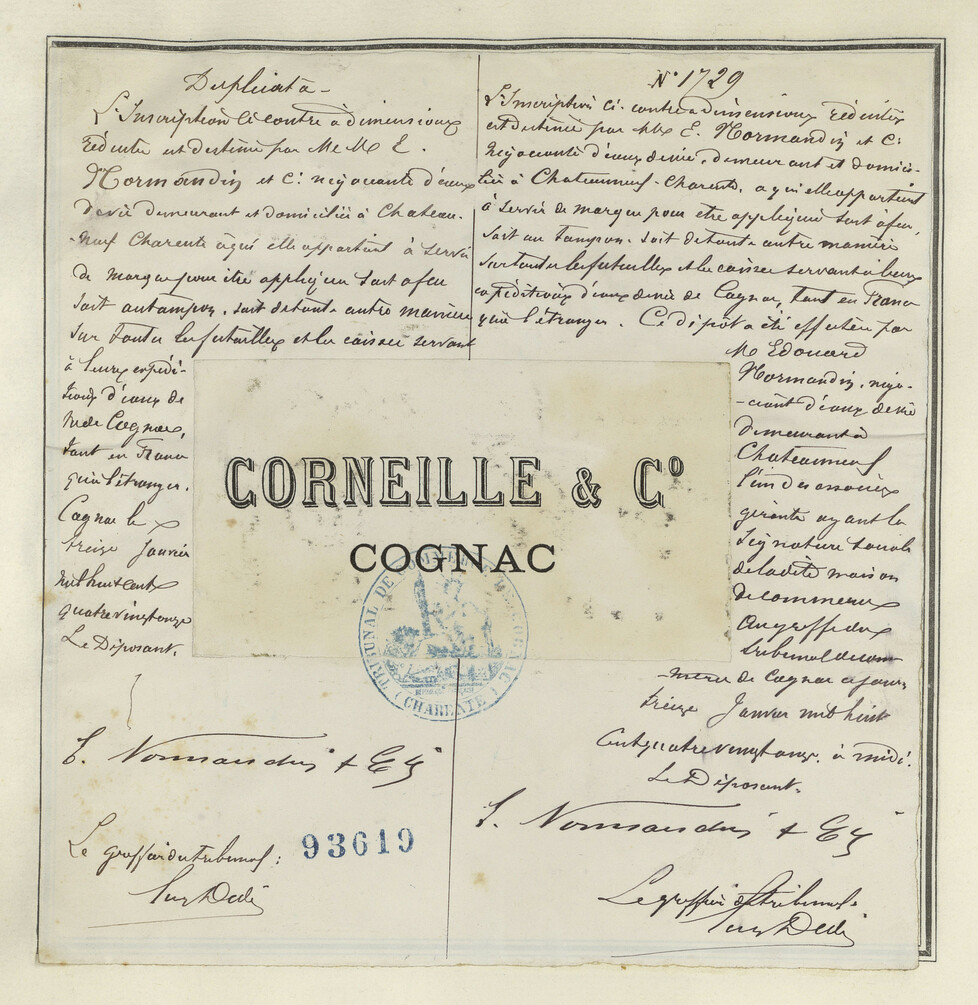 Duplicata -
L'Inscription ci contre à dimensions
réduites est destinée par Me M E.
Normandin et Cie négociants d'eaux
de vie demeurant et domiciliés à Chateau-
-neuf Charente à qui elle appartient à servir
de marque pour être appliquée soit à feu
soit au tampon, soit de toute autre manière
sur toutes les futailles et les caisses servant
à leurs expédi-
tions d'eaux de
vie de Cognac,
tant en France
qu'à l'étranger.
Cognac le
treize Janvier
mil huit cent
quatre vingt onze
Le Déposant.
E. Normandin & Cie
Le greffier du tribunal :
93619
N° 1729
L'Inscription ci-contre à dimensions réduites
est destinée par MM E. Normandin et Cie
négociants d'eaux de vie, demeurant et domici-
liés à Chateauneuf-Charente, à qui elle appartient
à servir de marque pour être appliquée soit à feu,
soit au tampon, soit de toute autre manière
sur toutes les futailles et les caisses servant à leurs
expéditions d'eaux de vie de Cognac, tant en France
qu'à l'étranger. Ce dépôt a été effectué par
M Edouard
Normandin, négo-
-ciant d'eaux de vie
demeurant à
Chateauneuf
l'un des associés
gérants ayant la
signature sociale
de la dite maison
de commerce
au greffe du
tribunal de com-
merce de Cognac ce jour
treize Janvier mil huit
cent quatre vingt onze, à midi.
Le Déposant.
E. Normandin & Cie
Le greffier du tribunal
CORNEILLE & Co
COGNAC
TRIBUNAL DE COMMERCE DE COGNAC
(CHARENTE)